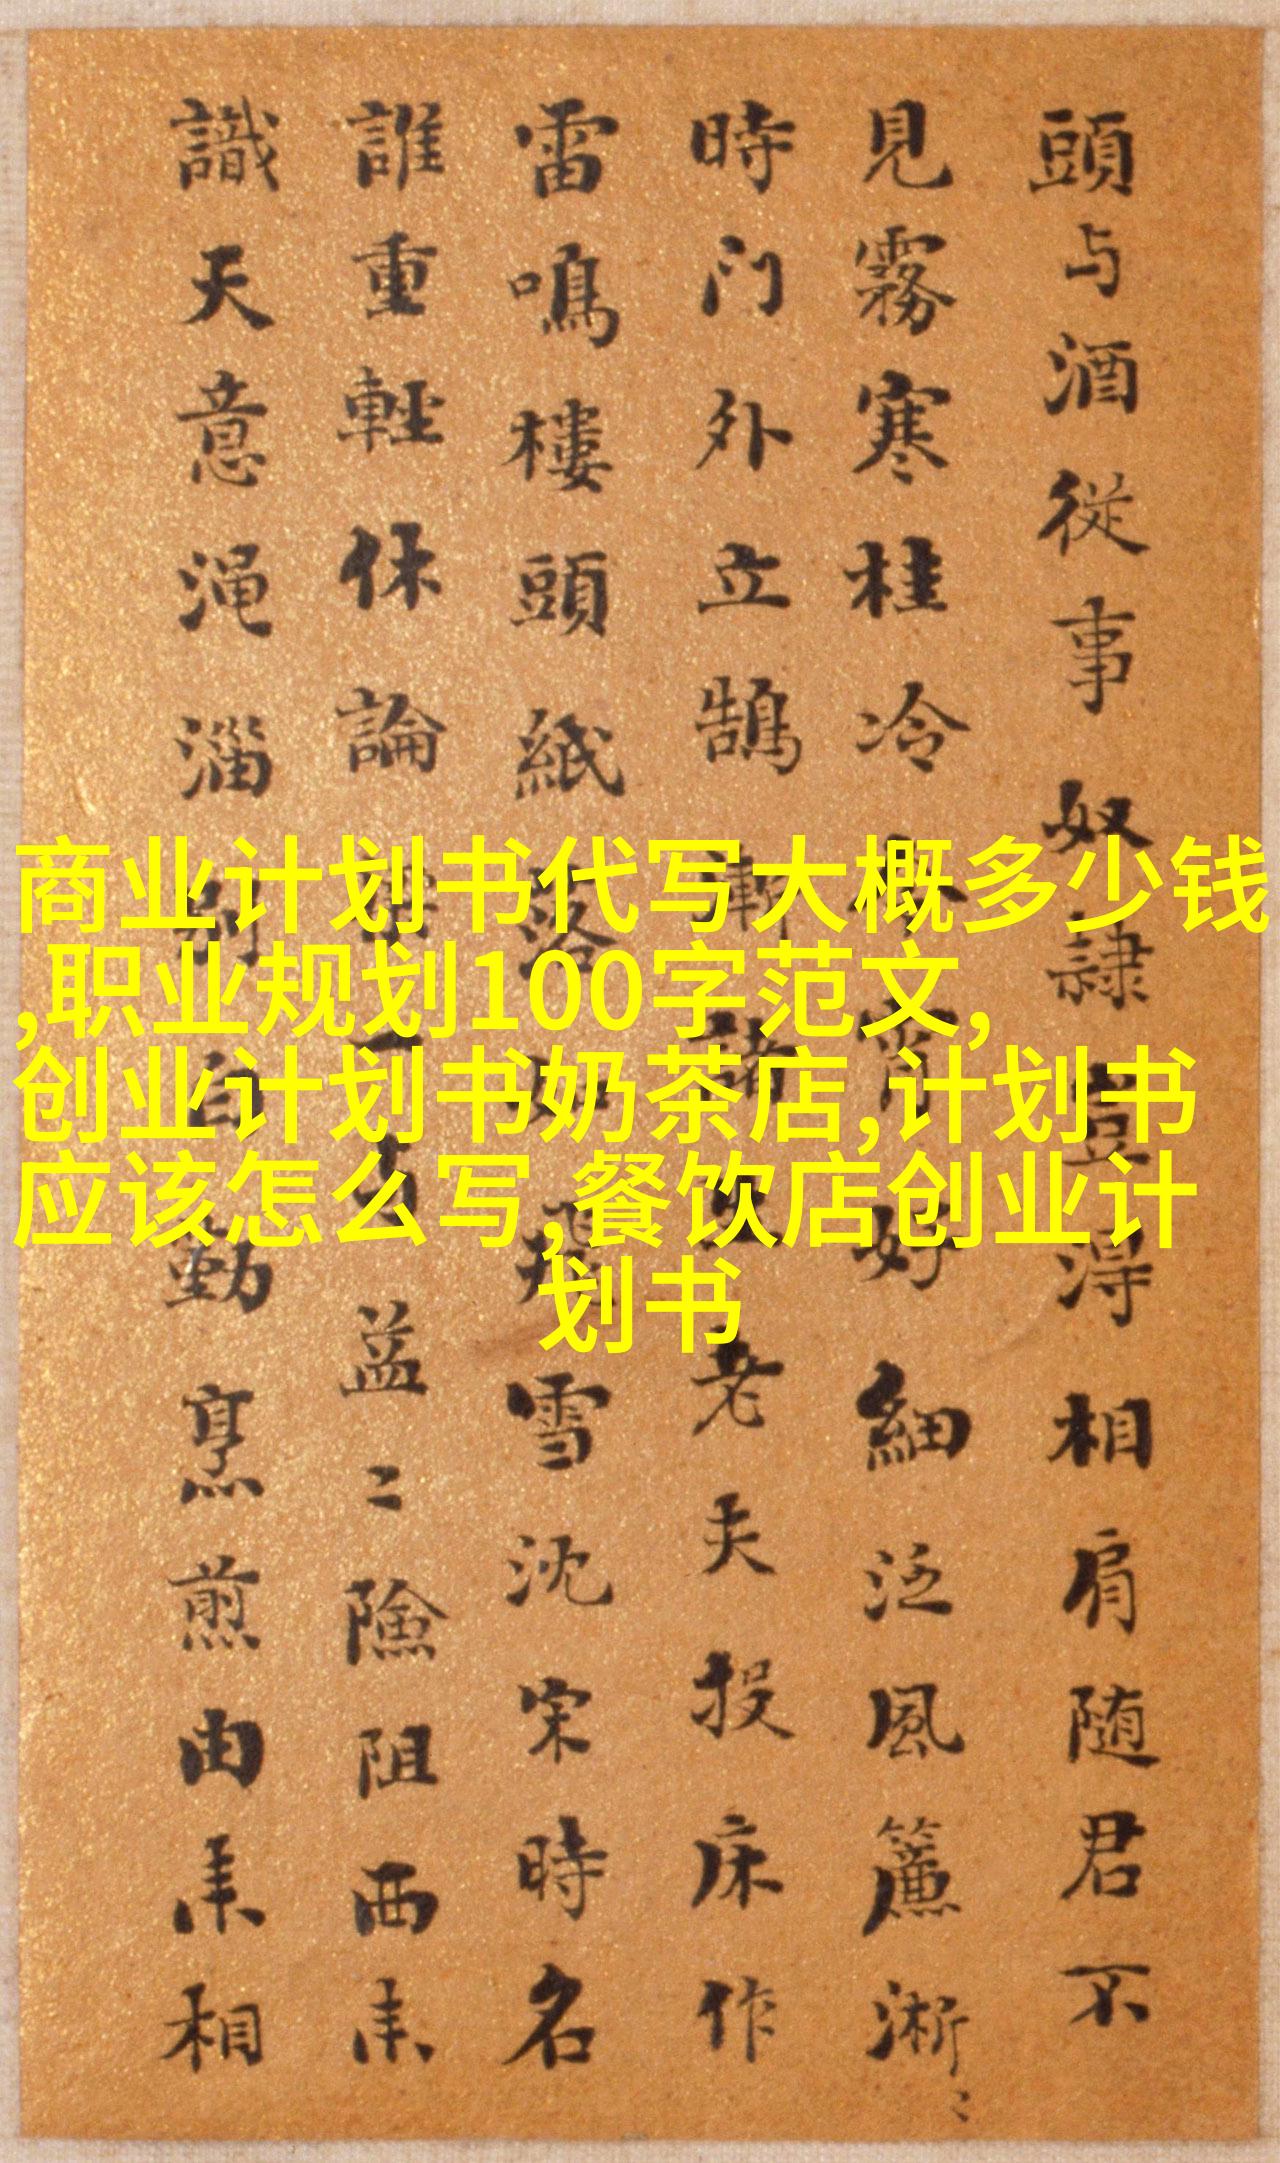 頭与酒從事奴隷豈得相肩随君不
見霧寒桂冷宵好細泛風簾淅〻
時门外立鵠漸諸老夫投床作
雷鳴樓頭紙落飛雪沈宋時名
誰重輕休論益〻險阻西来
識天意渑淄別自勤烹煎由来相
商业计划书代写大概多少钱
,职业规划100字范文,
创业计划书奶茶店,计划书
应该怎么写,餐饮店创业计
划书